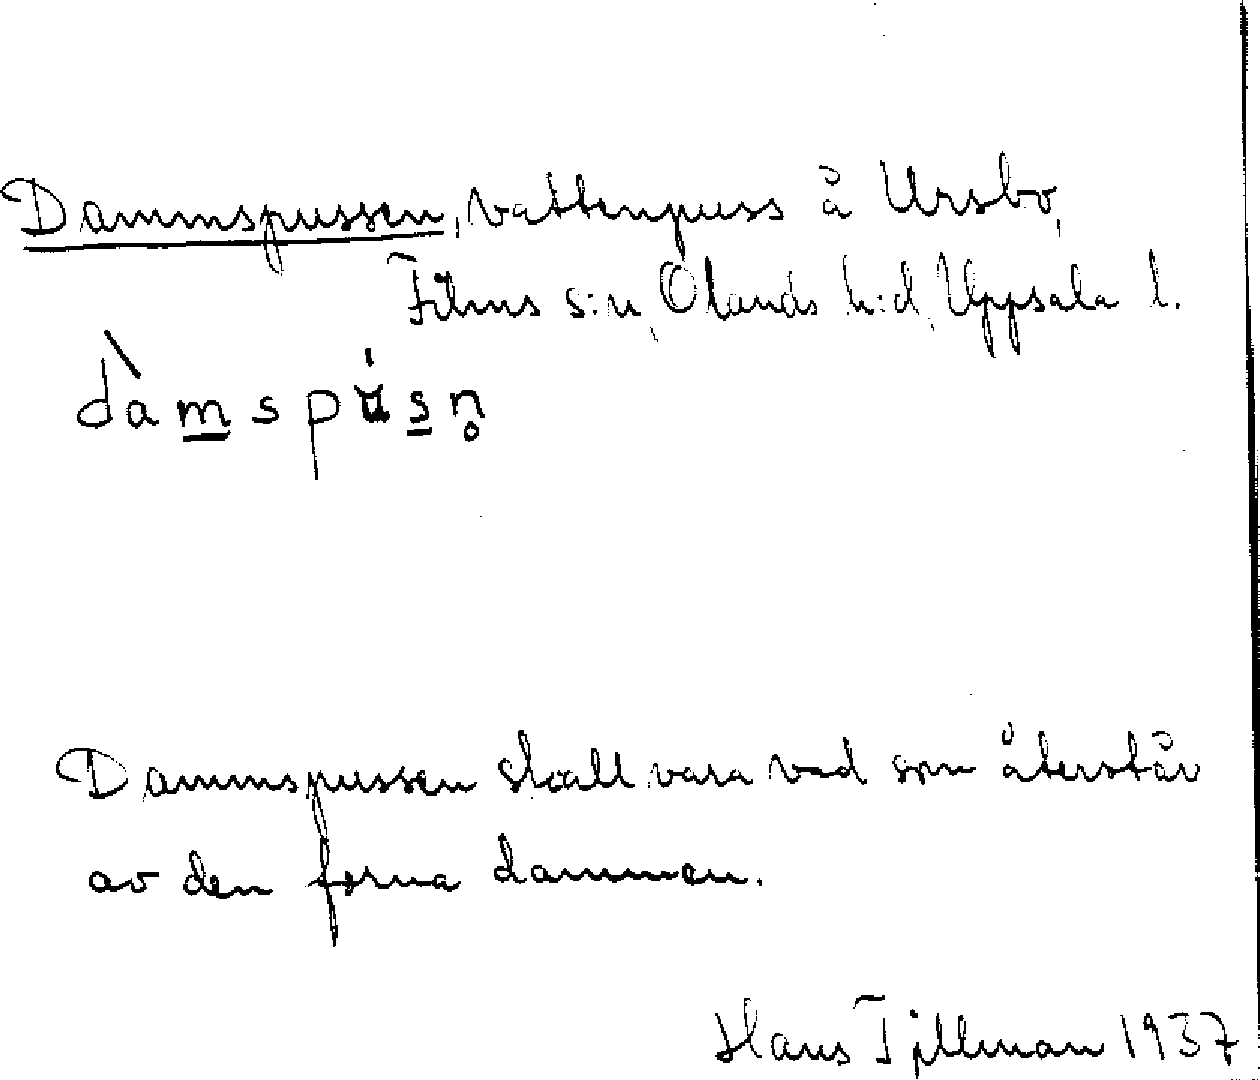 Dammspussen, vattenpuss å Ursbo,
Films s:n, Olands h:d, Uppsala l.
dàmspu̇sn̥
Dammspussen skall vara vad som återstår
av den forna dammen.
Hans Tjillman 1937